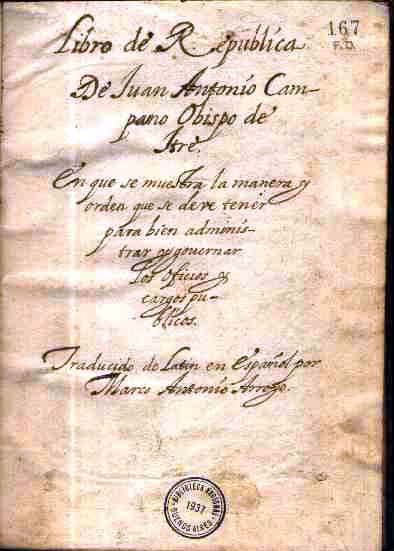 167
F.D.
Libro de Republica
De Juan Antonio Cam-
pano Obispo de
En que se muestra la manera y
orden que se deve tener
para bien adminis-
trar y governar
los oficios y
cargos pu-
blicos.
Traducido de Latin en Español por
Marco Antonio Arroyo.
BIBLIOTECA NACIONAL
1937
BUENOS AIRES